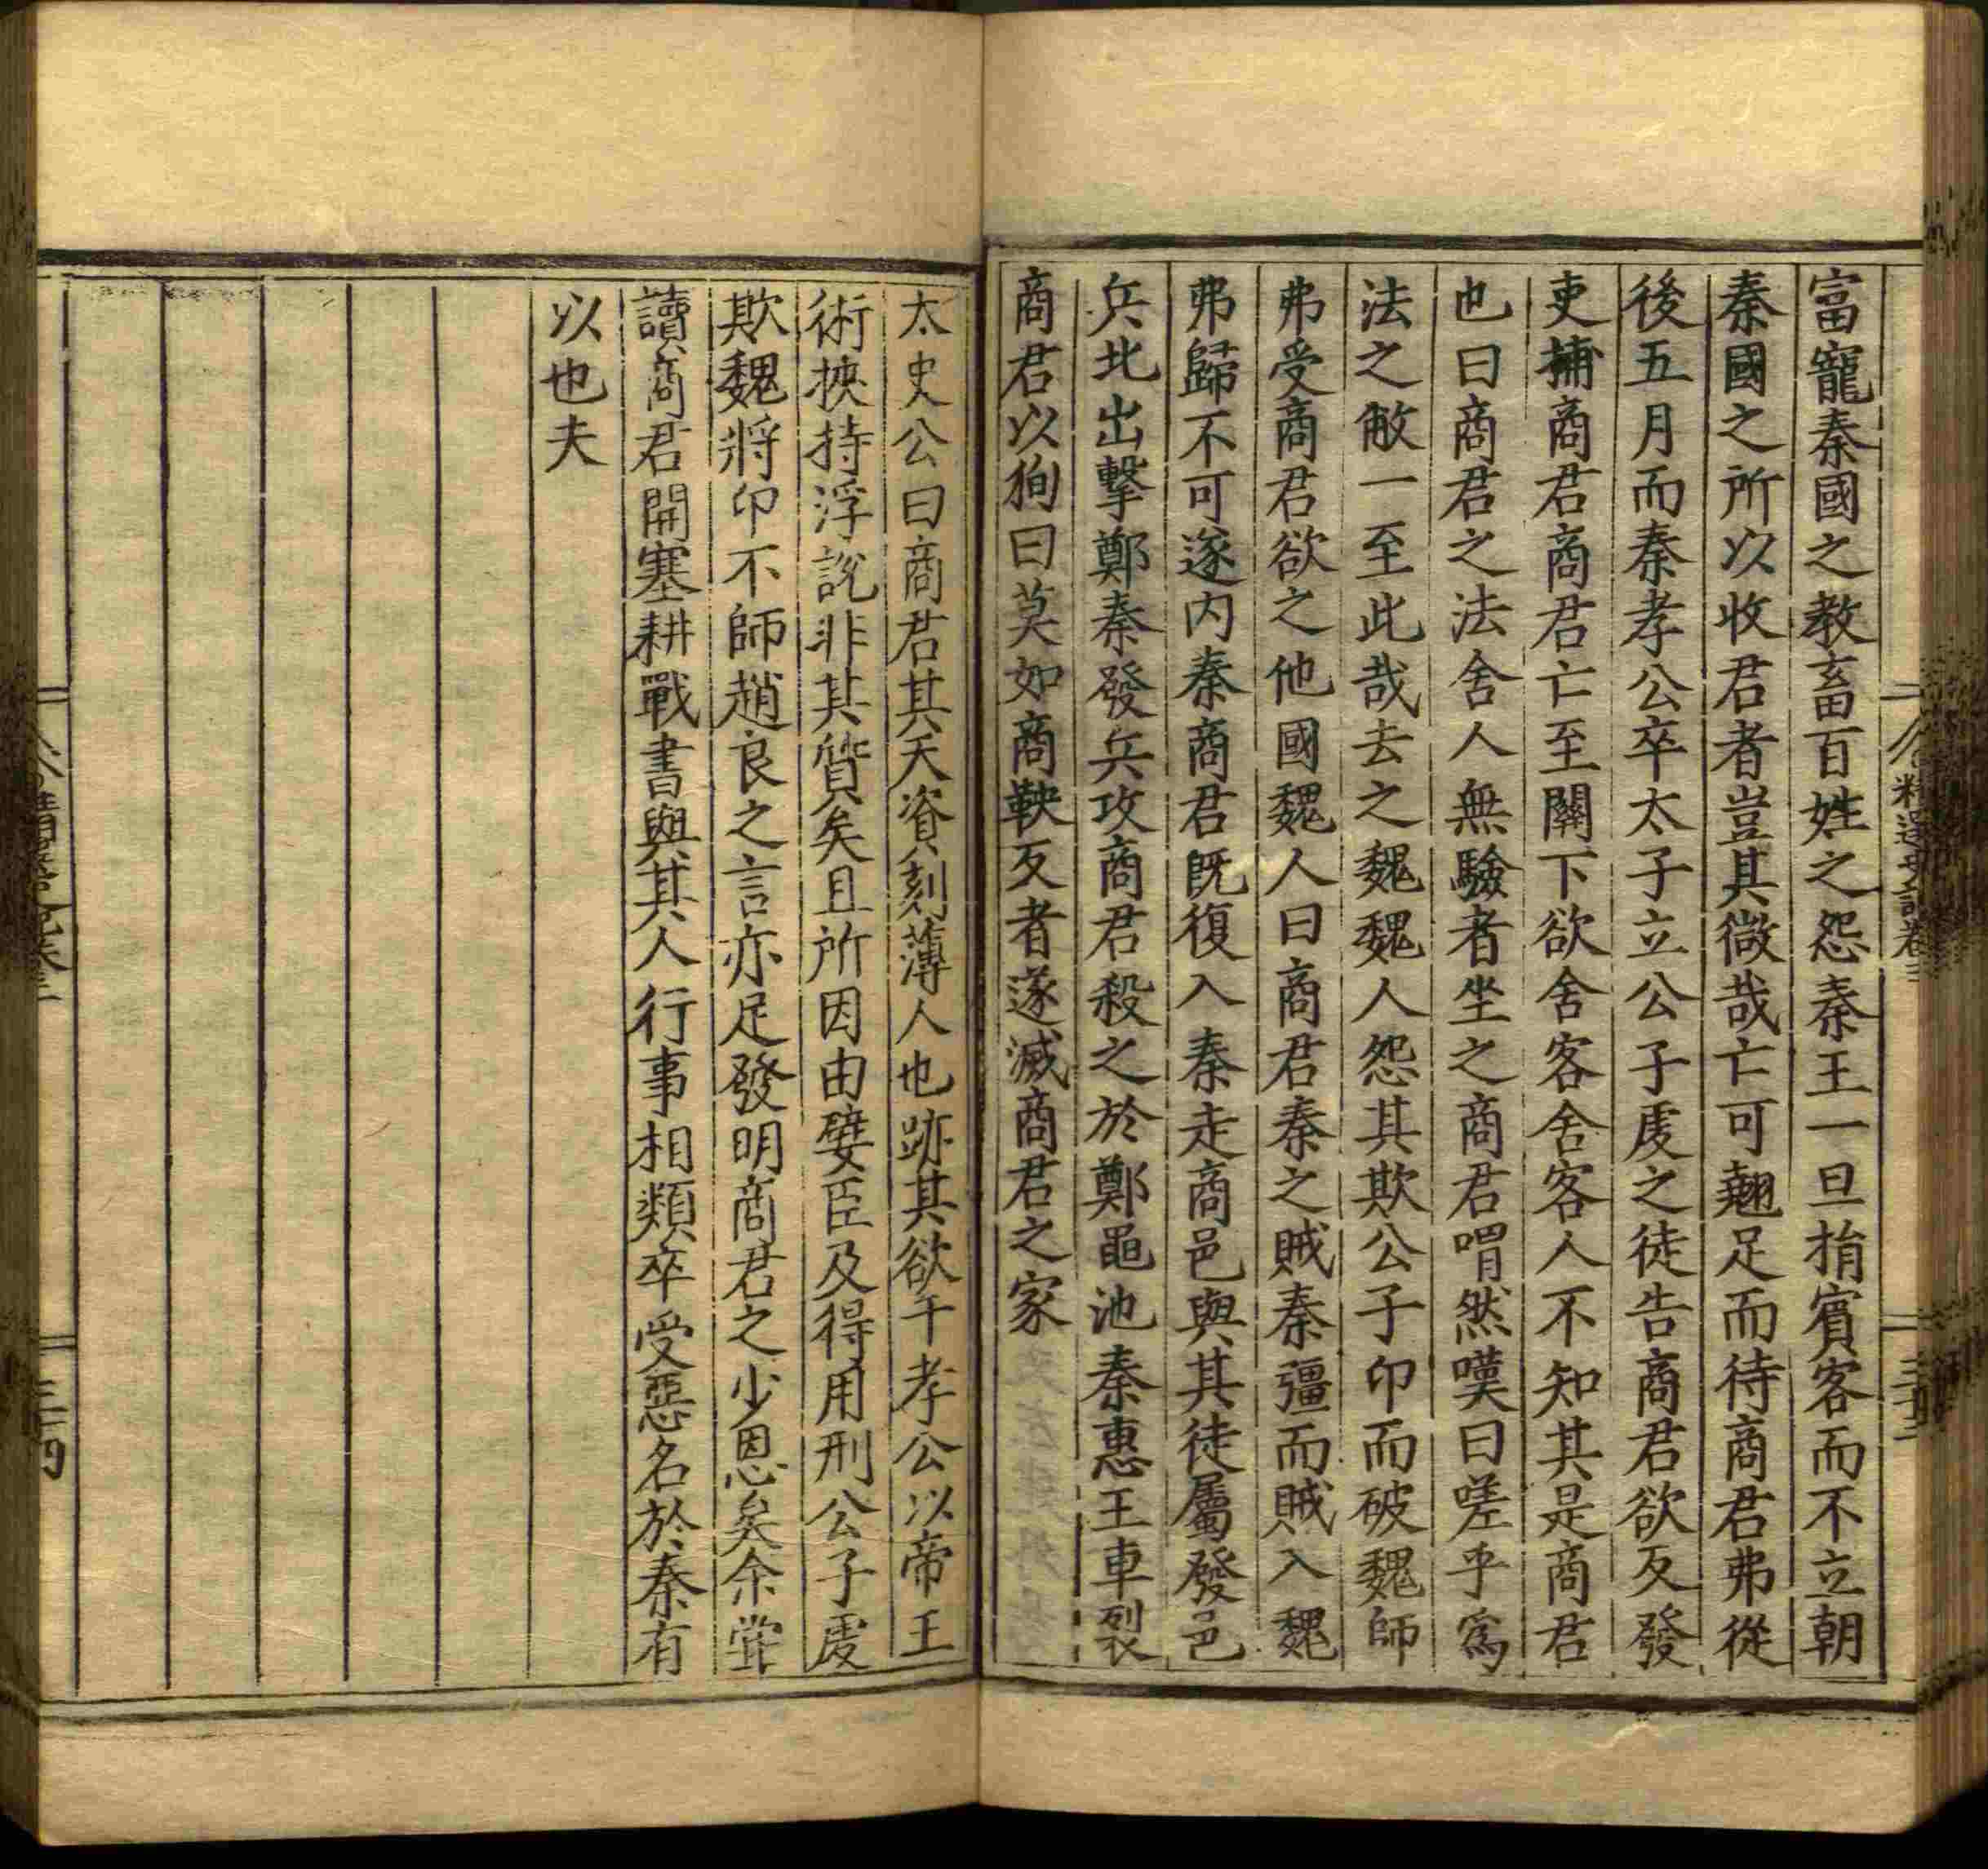 富寵秦國之教畜百姓之怨秦王一旦捐賓客而不立朝
秦國之所以收君者豈其微哉亡可翹足而待商君弗從
後五月而秦孝公卒太子立公子虔之徒告商君欲反發
吏捕商君商君亡至關下欲舍客舍客人不知其是商君
也曰商君之法舍人無驗者坐之商君喟然嘆曰嗟乎爲
法之敝一至此哉去之魏魏人怨其欺公子卬而破魏師
弗受商君欲之他國魏人曰商君秦之賊秦彊而賊入魏
弗歸不可遂内秦商君既復入秦走商邑與其徒屬發邑
兵北出擊鄭秦發兵攻商君殺之於鄭黽池秦惠王車裂
商君以狥曰莫如商鞅反者遂滅商君之家
太史公曰商君其天資刻薄人也跡其欲干孝公以帝王
術挾持浮說非其質矣且所因由嬖臣及得用刑公子虔
欺魏將卬不師趙良之言亦足發明商君之少恩矣余嘗
讀商君開塞耕戰書與其人行事相類卒受惡名於秦有
以也夫